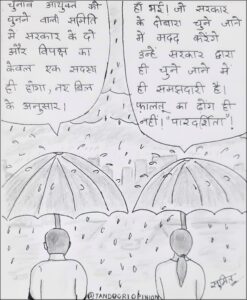 चुनाव आयुक्त को
चुनने वाली समिति
में सरकार के दो
और विपक्ष का
केवल एक सदस्य
ही होगा, नए बिल
के अनुसार।
हाँ भई। जो सरकार
के दोबारा चुने जाने
में मदद करेंगे
उन्हें सरकार द्वारा
ही चुने जाने में
ही समझदारी है।
फालतू का ढोंग ही
नहीं। "पारदर्शिता"!
@TANDOORIOPINION